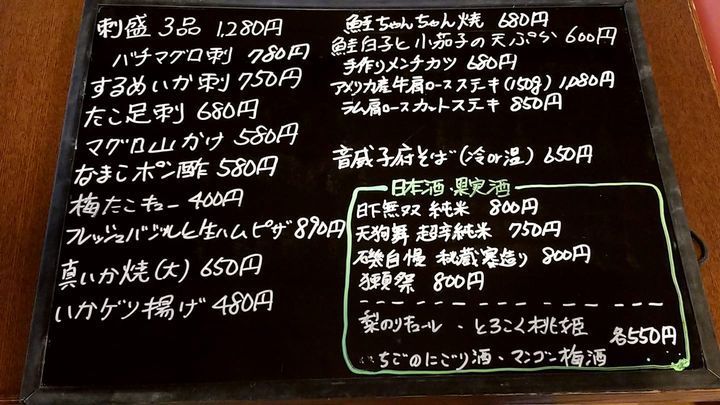 刺盛 3品 1,280円
バチマグロ刺 780円
するめいか刺 750円
たこ足刺 680円
マグロ山かけ 580円
なまこポン酢 580円
梅たこキュー 400円
フレッシュバジルと生ハムピザ 890円
真いか焼(大) 650円
いかゲソ揚げ 480円
鮭ちゃんちゃん焼 680円
鮭白子と小茄子の天ぷら 600円
手作りメンチカツ 680円
アメリカ産牛肩ロースステーキ(150g) 1,080円
ラム肩ロースカットステーキ 850円
音威子府そば(冷or温) 650円
日本酒・果実酒
日下無双 純米 800円
天狗舞 超辛純米 750円
磯自慢 秘蔵寒造り 800円
獺祭 800円
梨のリキュール・とろこく桃姫
各550円
いちごのにごり酒・マンゴー梅酒